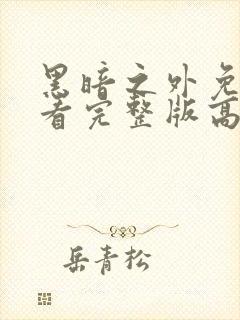 黑暗之外免
看完整版高
岳青松